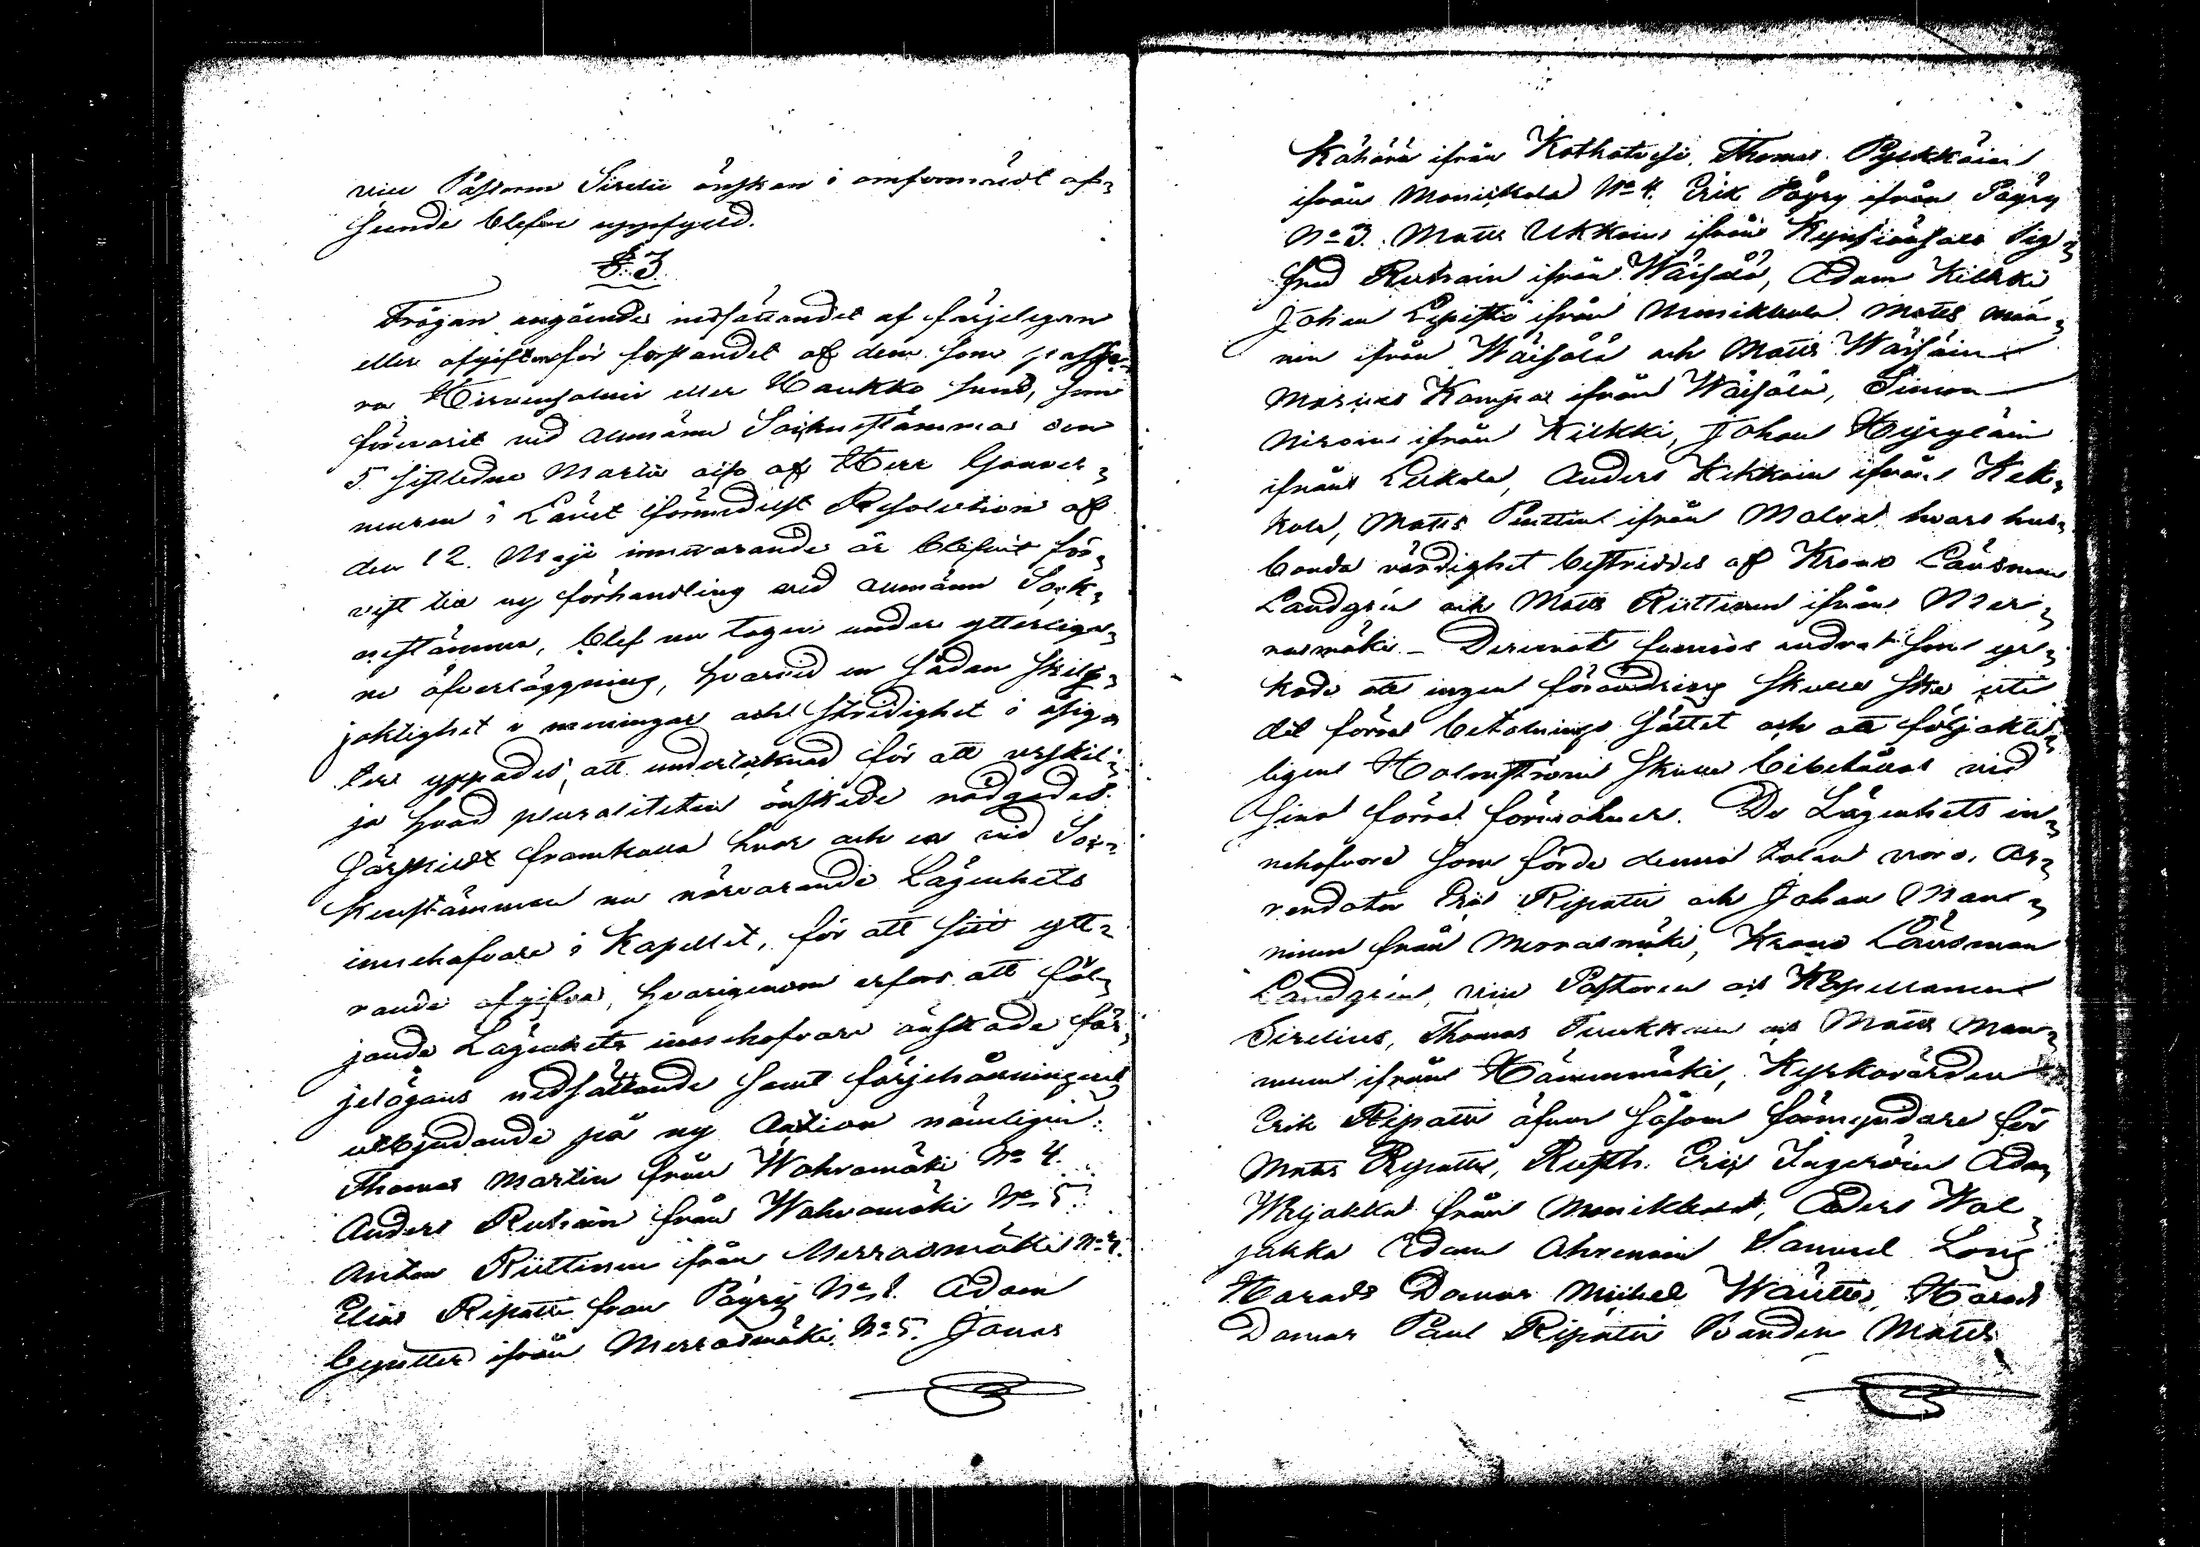 vice Pastorn Sirelii önskan i omförmäldt af-
seende blefve uppfylld.
§ 3
Frågan angående nedsättandet af färjelegan
eller afgiften för forsandet af dem som passe-
ra Hirvensalmi eller Haukko sund, som
förevarit vid allmänn Socknestämma den
5 sistledne Martii och af Herr Gouver-
neuren i Länet förmedelst Resolution af
den 12 Maji innevarande år blifvit för-
vist till ny förhandling vid allmänn Sock-
nestämma, blef nu tagen under ytterliga-
re öfverläggning, hvarvid en sådan skilj-
jaktighet i meningar och stridighet i åsig-
ter yppades, att undertecknad för att urskil-
ja hvad pluraliteten önskade nödgades
särskildt framkalla hvar och en vid Soc-
kenstämman nu närvarande Lägenhets
innehafvare i Kapellet, för att sitt ytt-
rande afgifva, hvarigenom erfors att föl-
jande Lägenhets innehafvare önskade fär-
jelegans nedsättande samt färjehållningens
utbjudande på ny Auktion nämligen:
Thomas Martin från Wahvamäki No 4.
Anders Rutsain från Wahvamäki No 5.
Anton Riittinen ifrån Merrasmäki No
Elias Ripatti från Pöyry No 1. Adam
ifrån Merrasmäki No 5. Jonas
ifrån Thomas Pyykkäin
ifrån Monikkala No 4. Erik Pöyry ifrån Pöyry
No 3. Matts Ukkoin ifrån Kynsiänsaari Sig-
fred Rutsain ifrån Wäisälä, Adam Kilkki
Johan Lepistö ifrån Monikkala Matts Män-
nin ifrån Wäisälä och Matts Wäisäin
Marcus Kamppa ifrån Wäisälä, Simon
Niroin ifrån Kilkki, Johan Hyryläin
ifrån Leikola, Anders Kekkoin ifrån Kek-
kola, Matts Penttin ifrån Malva hvars hus-
bonda värdighet bestriddes af Krono Länsman
Landgrén och Matts Riittinen ifrån Mer-
rasmäki – Deremot funnos andra som yr-
kade att ingen förändring skulle ske uti
det förra betalnings sättet och att följakte-
ligen Holmström skulle bibehållas vid
sina förra förmåner. De Lägenhets in-
nehafvare som förde denna talan voro, Ar-
rendator Eric Ripatti och Johan Man-
ninen från Merrasmäki, Krono Länsman
Landgrén, vice Pastoren och Kapellanen
Sirelius, Thomas Turkkan och Matts Man-
ninen ifrån Hämmmäki, Kyrkovärden
Erik Ripatti äfven såsom förmyndare för
Matts Ripatti, Rusth. Eric Ingeroin Adam
Waljakka från Monikkala, Anders Wal-
jakka Adam Ahvenain Samuel Long
Härads Domar Michel Wäntti, Härads
Domar Paul Ripatti Bonden Matts